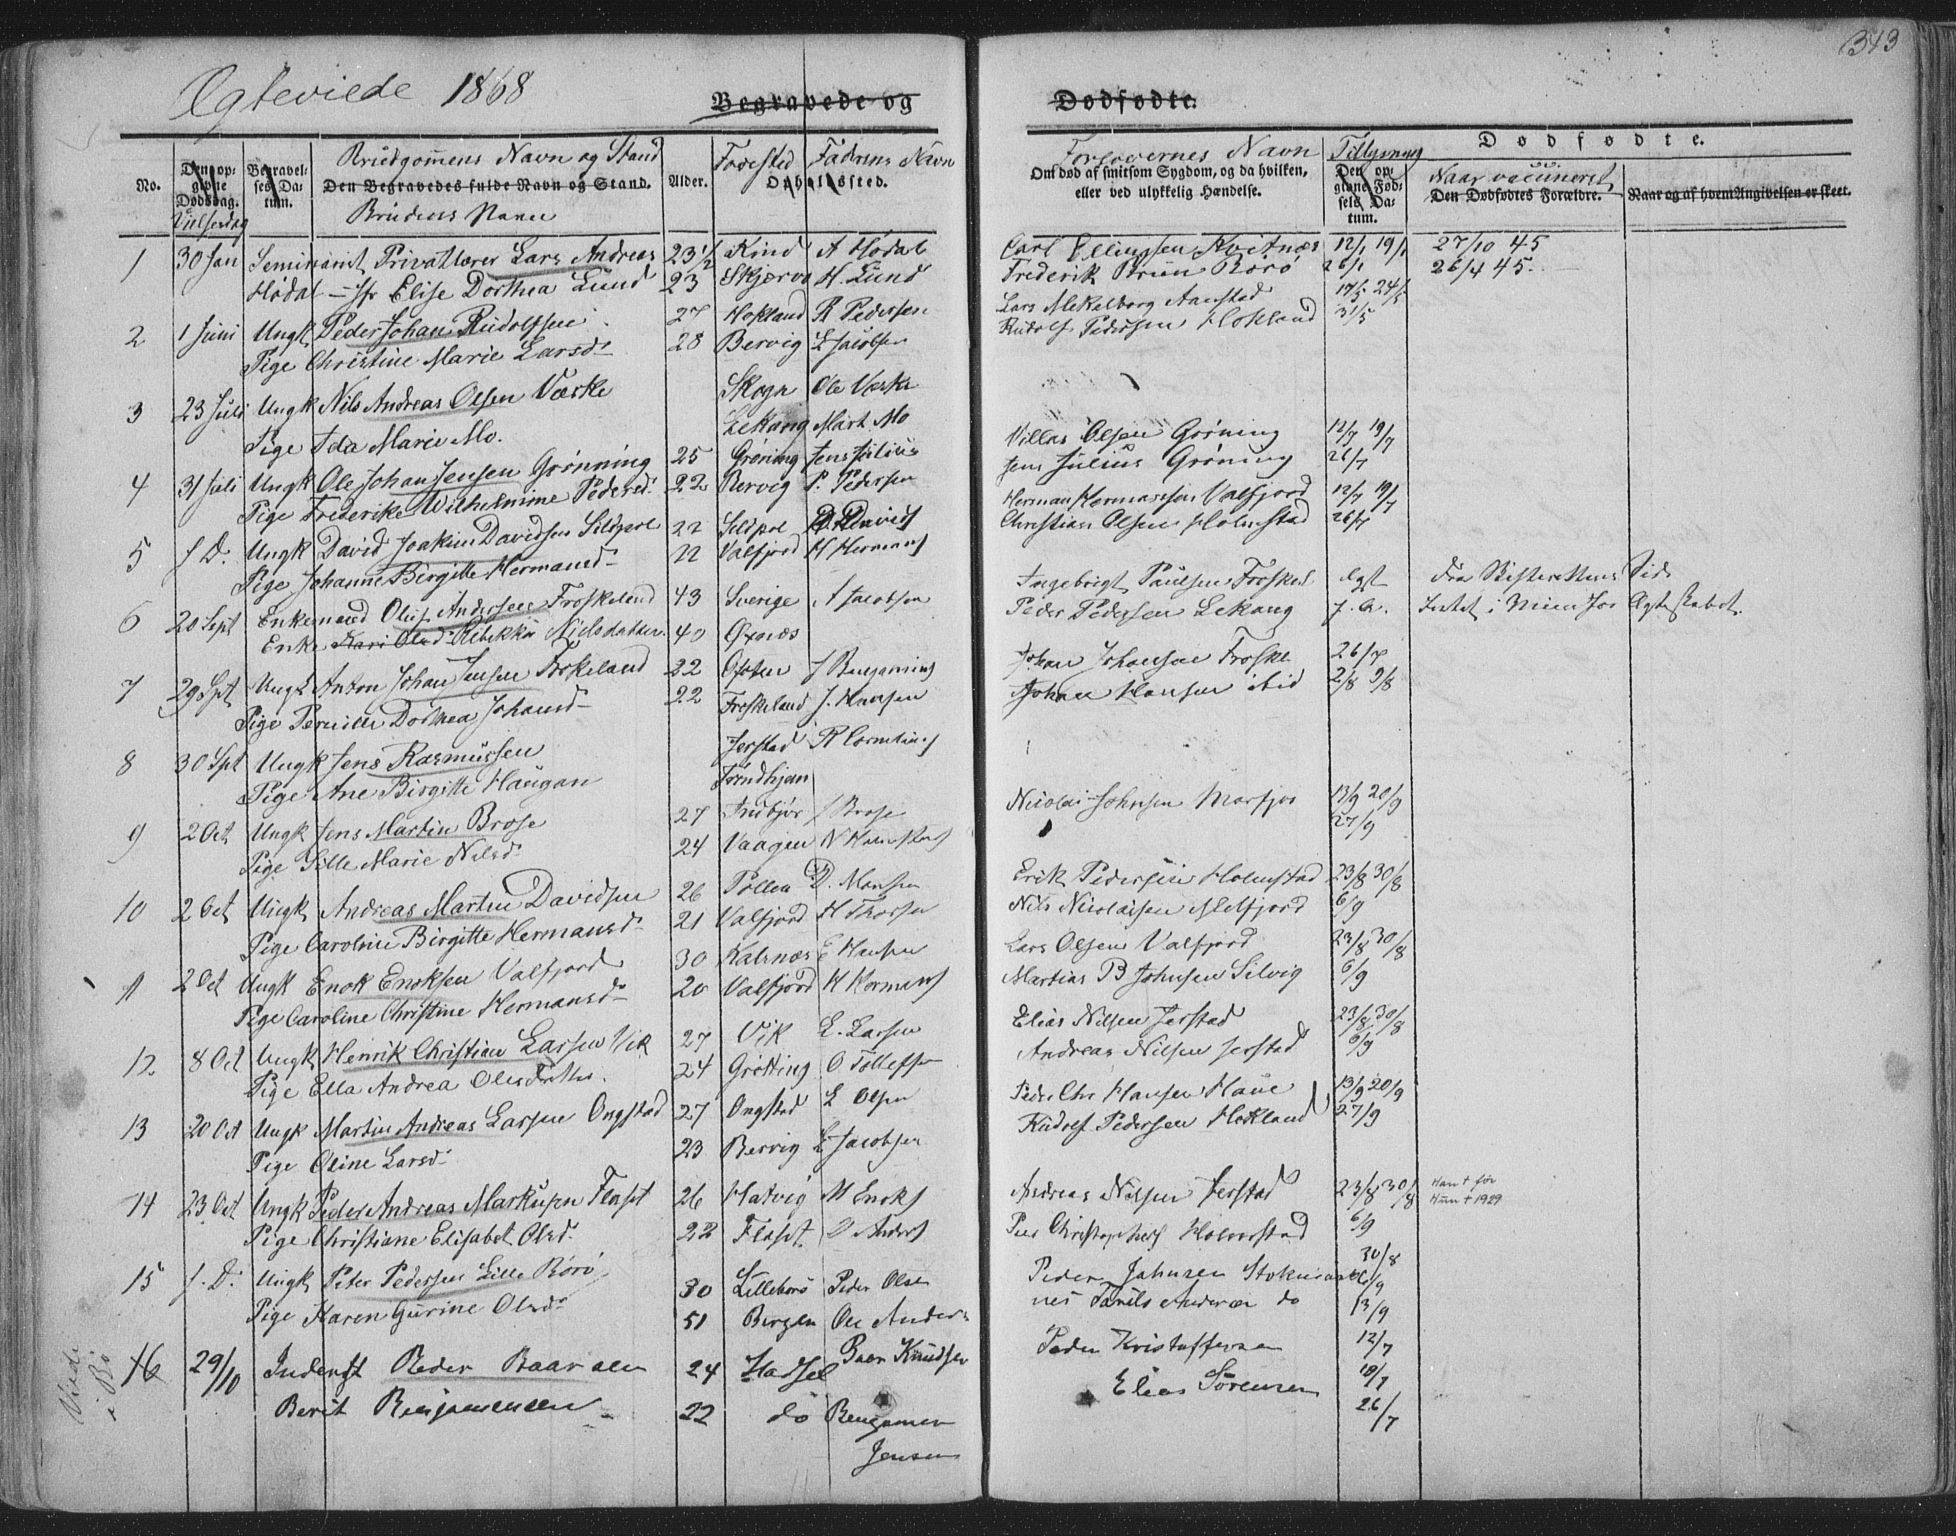 343
Ægteviede 1868
Begravede og Dødfødte.
No. Den opgivne Dødsdag. Vielsesdag Begravelses Datum. Brudgommens Navn og Stand Den Begravedes fulde Navn og Stand. Brudens Navn Alder. Fødested Fadrens Navn Opholdssted. Forlovernes Navn Om død af smitsom Sygdom, og da hvilken, eller ved ulykkelig Hændelse. Tillysning Den opgivne Fødsels Datum. Dødfødte. Naar vaccineret Den Dødfødtes Forældre. Naar og af hvem Angivelsen er skeet.
1 30 Jan Seminarist Privatlærer Lars Andreas 23 1/2 Kind A Hødal Carl Ellingsen Kvitnæs 12/1 19/1 27/10 45
Hødal – Jfr Elise Dorthea Lund 23 Skjervø H. Lund Frederik Bruun Børø 26/1 26/4 45.
2 1 Juni Ungk Peder Johan Rudolfsen 27 Hokland R Pedersen Lars Mekelborg Aanstad 17/5 24/5
Pige Christine Marie Larsd 28 Bervig L Jacobsen Rudolf Pedersen Hokland 31/5
3 23 Juli Ungk Nils Andreas Olsen Værke Skogn Ole Værke
Pige Ida Marie Mo. Lekang Mart. Mo
4 31 Juli Ungk Ole Johan Jensen Grønning 25 Grøning Jens Julius Villas Olsen Grøning 12/7 19/7
Pige Frederike Wilhelmine Pedersd. 22 Bervig P. Pedersen Jens Julius Grøning 26/7
5 f D. Ungk David Joakim Davidsen Sildpol 22 Sildpol D. Davids Herman Hermansen Valfjord 12/7 19/7
Pige Johanne Birgitte Hermansd 22 Valfjord H Hermans Christian Olsen Holmstad 26/7
6 20 Sept Enkemand Oluf Andersen Froskeland 43 Sverige A Jacobsen Ingebrigt Paulsen Froskel
Enke Kari Olsd Rebekka Nielsdatter 40 Øxnæs Peder Pedersen Lekang
7 29 Spt Ungk Anton Johan Jensen Froskeland 22 Ofoten J Benjamins Johan Johansen Froskel 26/7
Pige Pernille Dorthea Johansd 22 Froskeland J. Hansen Johan Hansen ibid 2/8 9/8
8 30 Spt Ungk Jens Rasmussen Jerstad R Cornelius
Pige Ane Birgitte Haugan Trondhjem
9 2 Oct Ungk Jens Martin Brose 27 J Brose Nicolai Johnsen Marfjor 13/9 20/9
Pige Sille Marie Nilsd 24 Vaagen 27/9
10 2 Oct Ungk Andreas Martin Davidsen 26 Pollen D. Monsen Erik Pedersen Holmstad 23/8 30/8
Pige Caroline Birgitte Hermansd 21 Valfjord H Thorsen Nils Nicolaisen Melfjord 6/9
11 2 Oct Ungk Enok Enoksen Valfjord 30 Kalsnæs E Hansen Lars Olsen Valfjord 23/8 30/8
Pige Caroline Christine Hermansd 20 Valfjord H Hermans Martias B Johnsen Silvig 6/9
12 8 Oct Ungk Henrik Christian Larsen Vik 27 Vik L. Larsen Elias Nilsen Jerstad 23/8 30/8
Pige Ella Andrea Olesdatter. 24 Grøtting O Tollefsen Andreas Nilsen Jerstad 6/9
13 20 Oct Ungk Martin Andreas Larsen Ongstad 27 Ongstad L Olsen Peder Chr Hansen Haue 13/9 20/9
Pige Oline Larsd 23 Bervig L Jacobsen Rudolf Pedersen Hokland 27/9
14 23 Oct Ungk Peder Andreas Markusen Flaset 26 Hatvig M Enoks Andreas Nilsen Jerstad 23/8 30/8 Han † før
Hun † 1929
Pige Christiane Elisabet Olsd. 22 Flaset O Anders Peer Christophers Holmstad 6/9
15 f. D. Ungk Peter Pedersen Lille Børø 30 Lillebørø Peder Olsen Peder Johnsen Stokmark 30/8 6/9
Pige Karen Gurine Olsd 51 Bergen Ole Anders do 13/9
Viede i Bø
16 29/10 Inderst Peder Baarsen 24 Hadsel Baar Knudsen Peder Kristoffersen 12/7
Berit Benjaminsen 22 do Benjamin Jensen Elias Sørensen 19/7
26/7